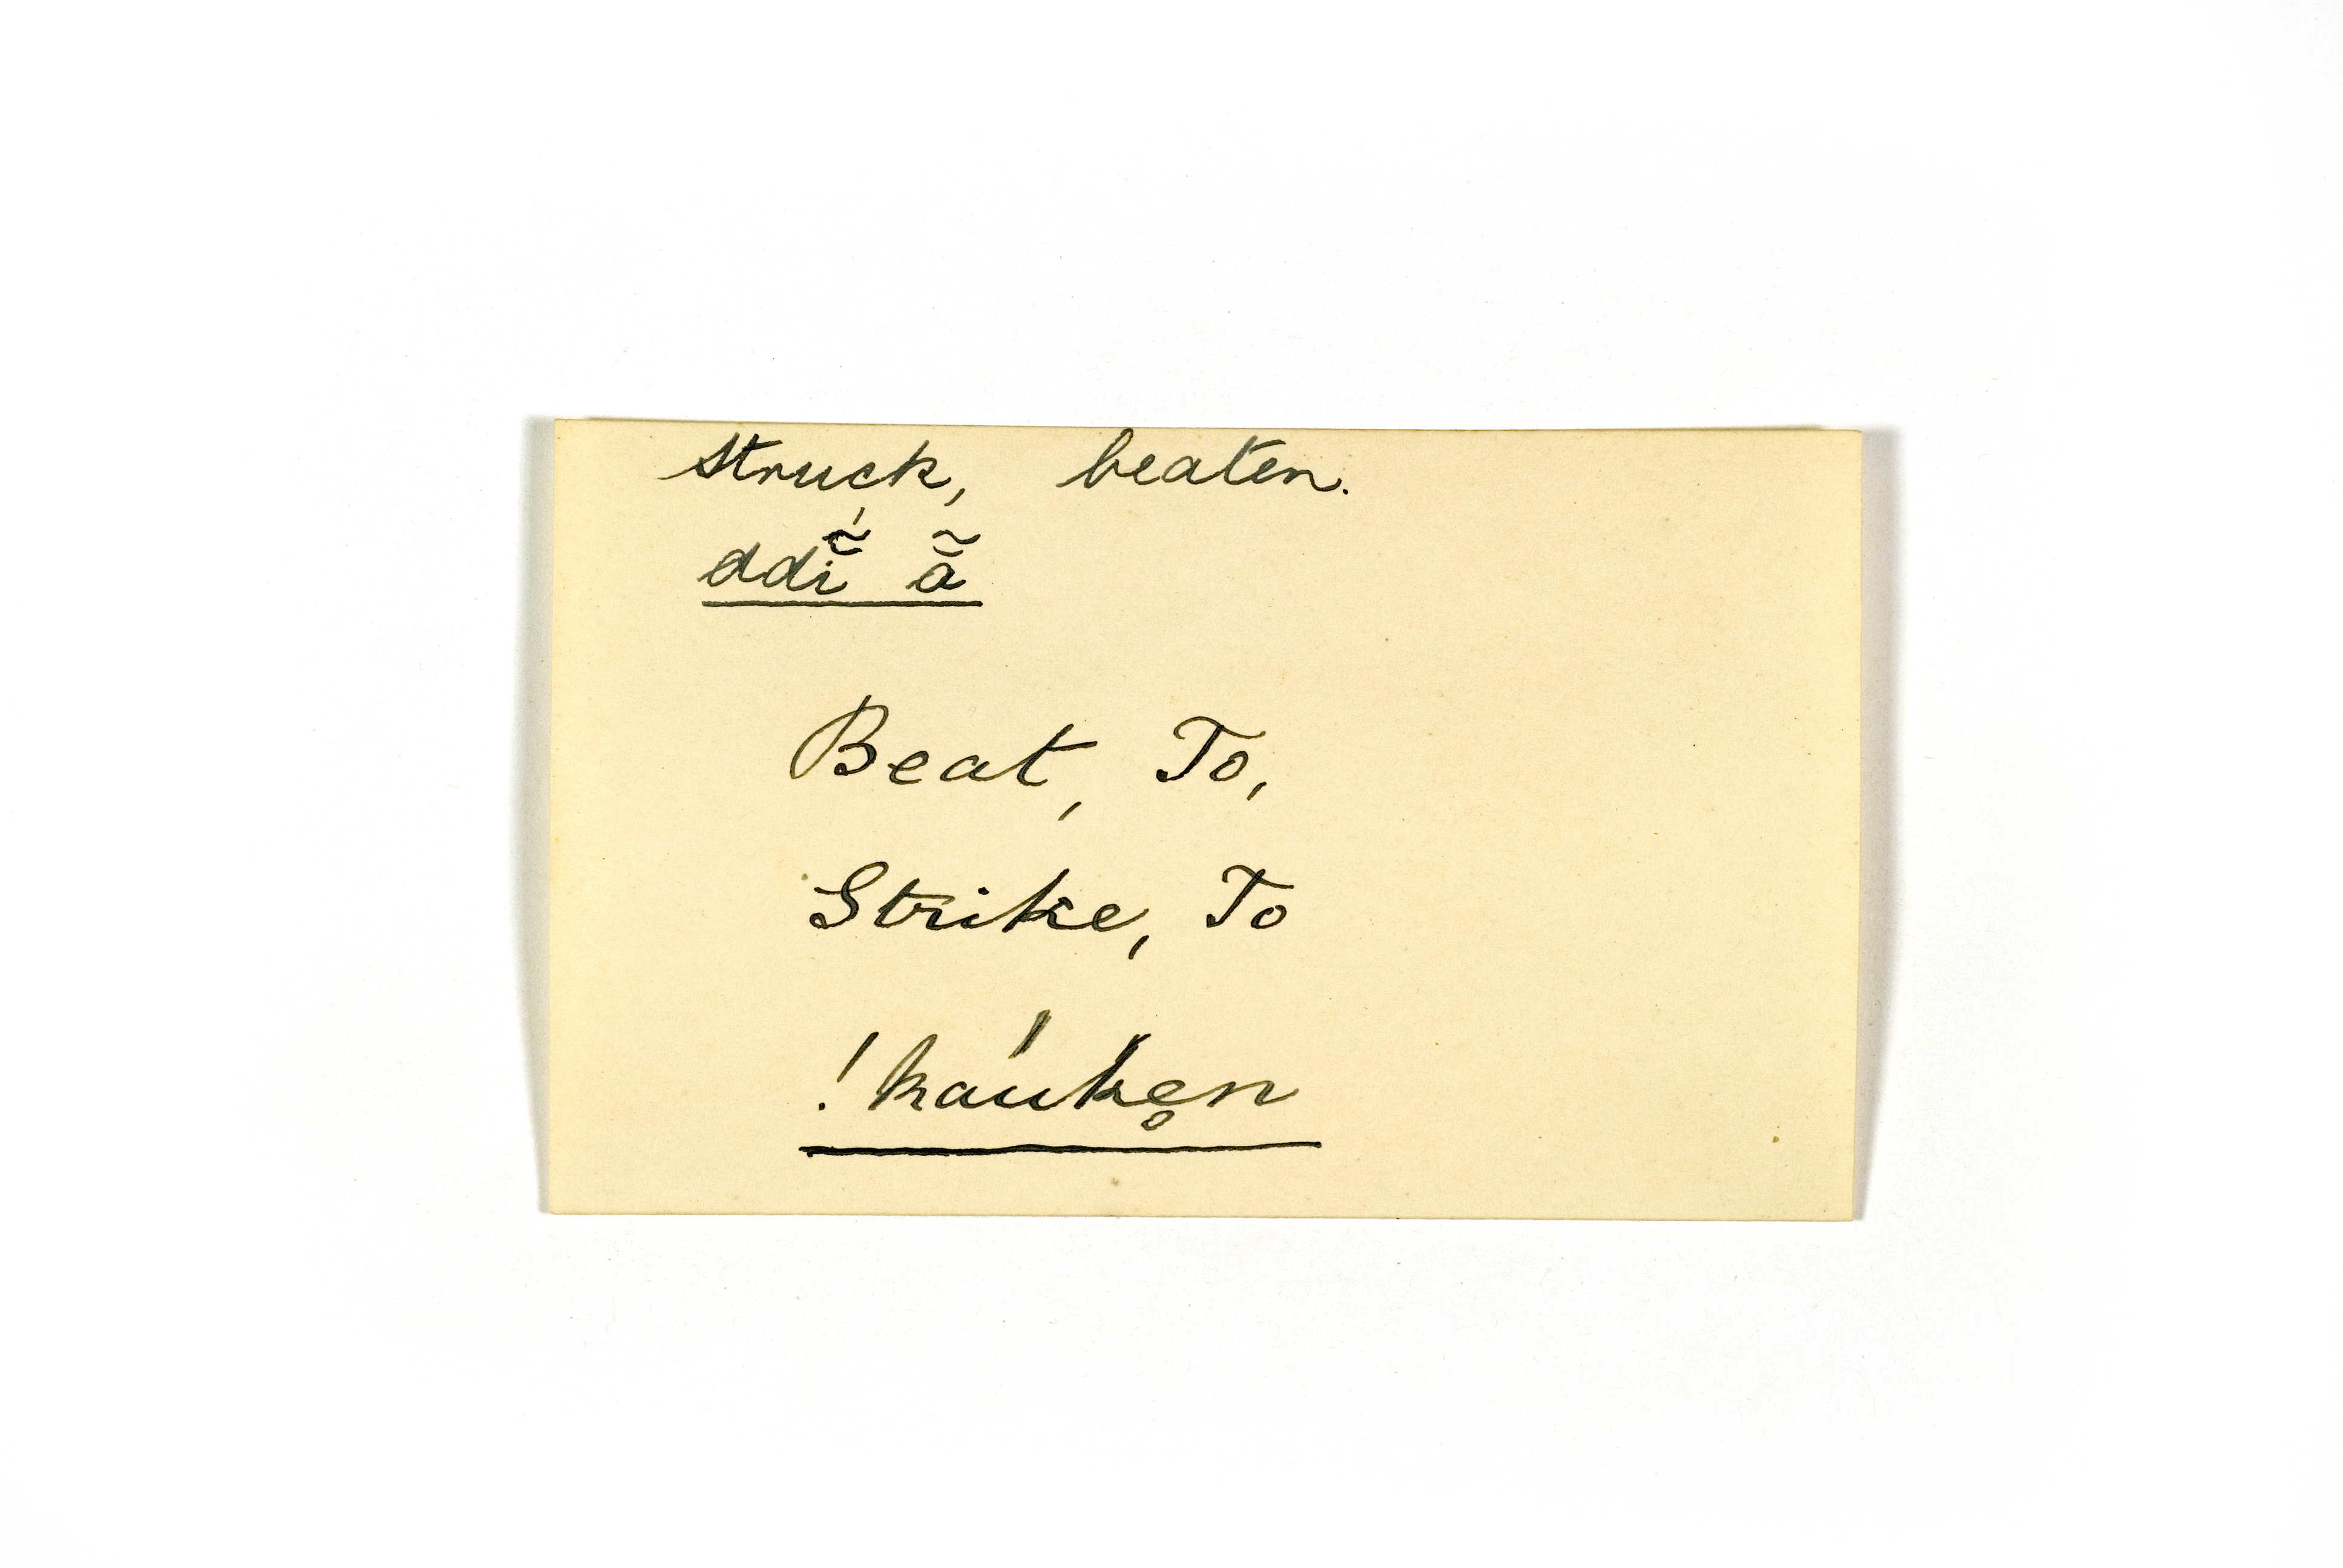 struck, beaten.
ddĭ̃́ ā̃
Beat, To,
Strike, To
!kaúken̥